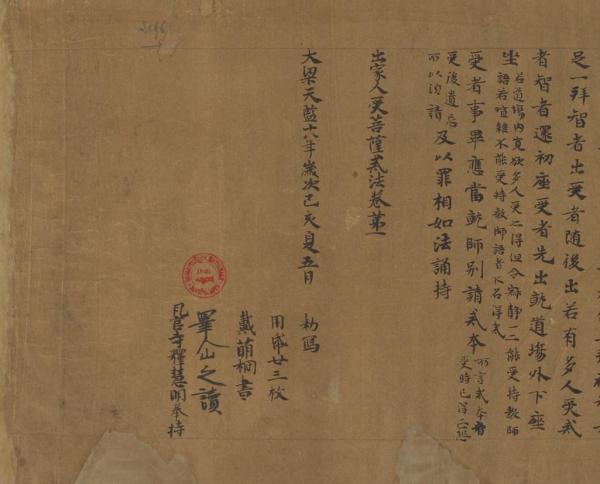 2196
足一拜智者出受者隨後出若有多人受戒
者智者還初座受者先出就道場外下座
坐若道場內寬欲多人受之得但令寂靜一一能受持教師
語若喧雜不能受持教師語者不名得戒
受者事畢應當就師別請戒本所言戒本者
受時已得
受後遺忘
所以須請及以罪相如法誦持
出家人受菩薩戒法卷第一
大梁天監十八年歲次己亥夏五月 勑寫
用紙廿三枚
戴萌桐書
公之讀
瓦官寺釋慧明奉持